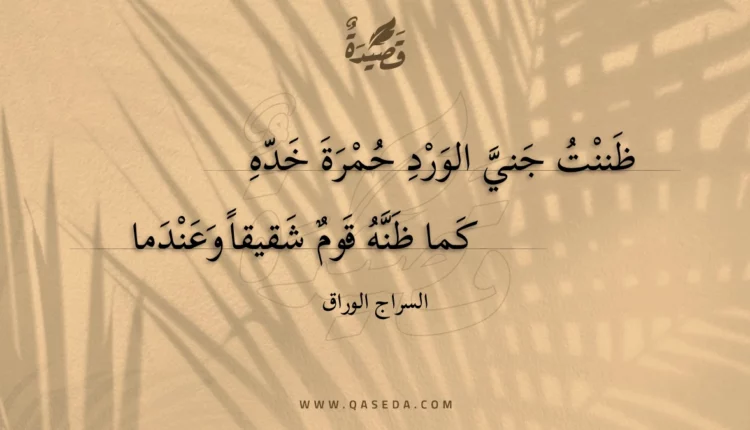 قَصِيْدَةٌ
ظَننْتُ جَنيَّ الوَرْدِ حُمْرَةَ خَدّهِ
كَما ظَنَّهُ قَومٌ شَقيقاً وَعَنْدَما
السراج الوراق
WWW.QASEDA.COM